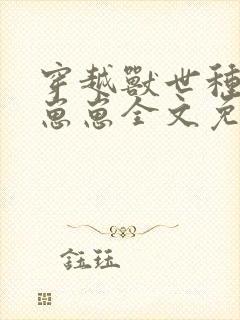 穿越獸世種
崽崽全文免
鈺珏